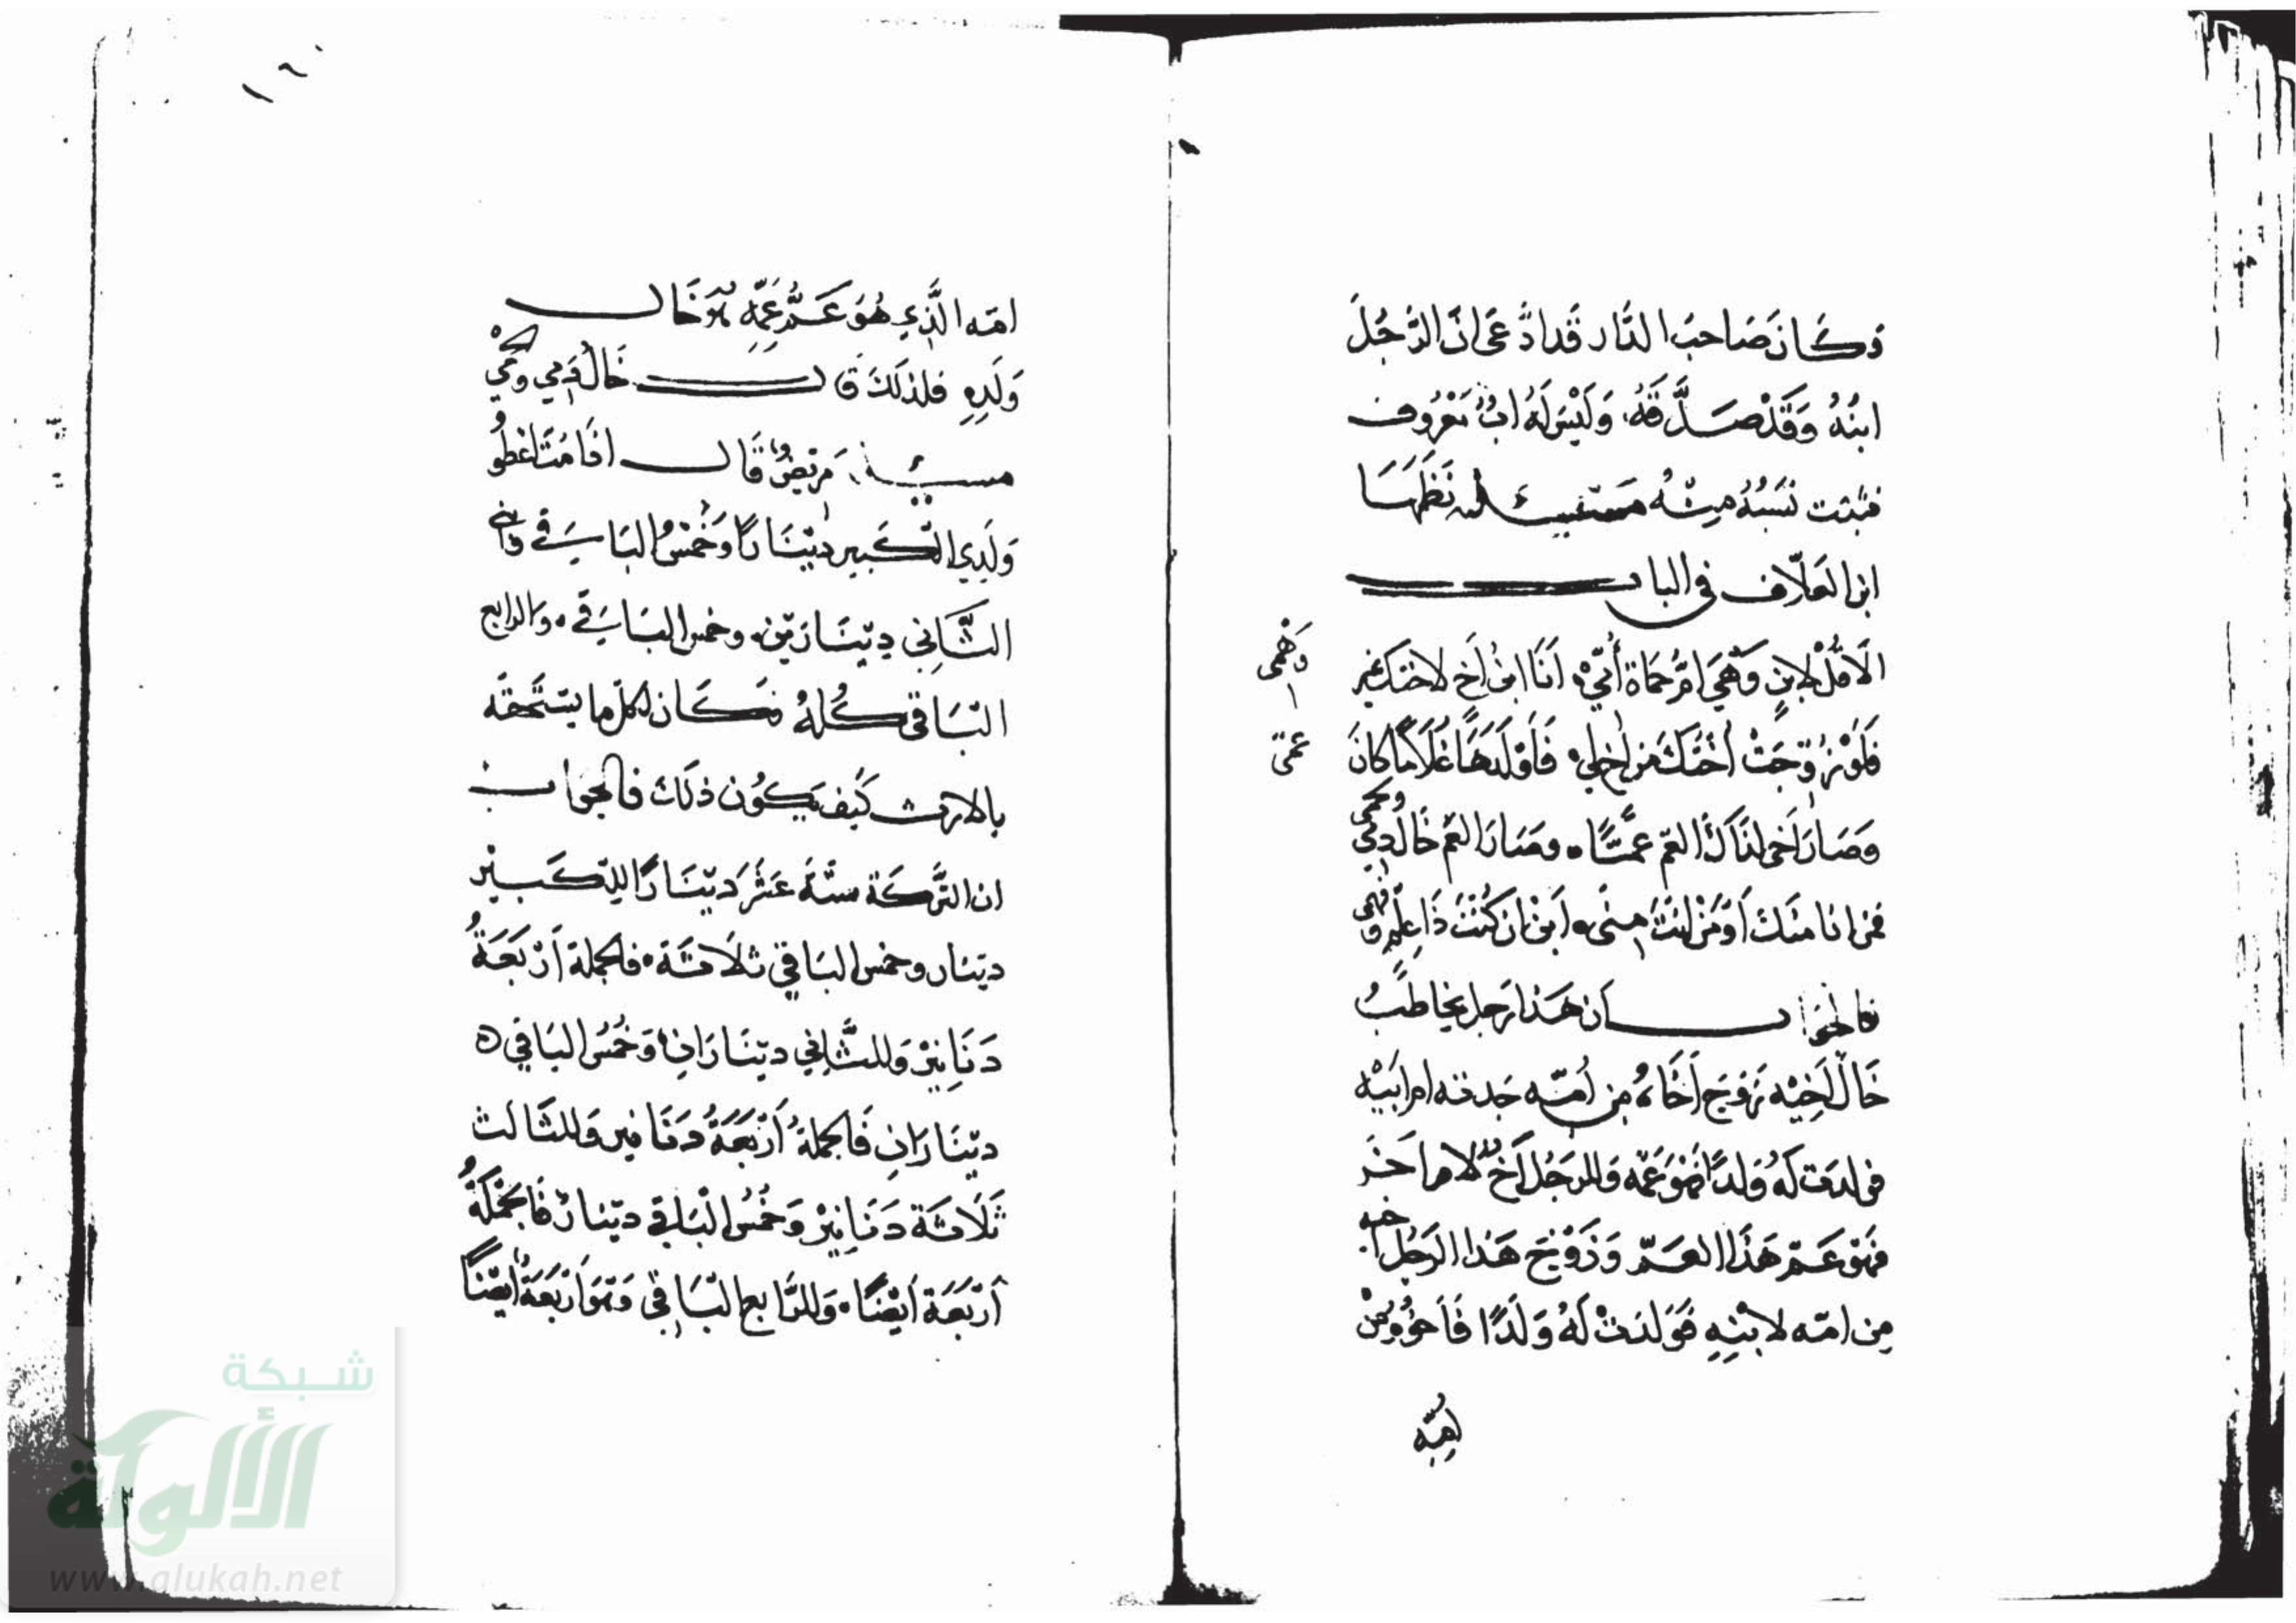 وَكَانَ صَاحبُ الدَّار قَدادَّعَى انَ الرَّجُلَ
ابنُهُ وَقَدْ صَدَّقَهُ، وَلَيْسَ لَهُ ابٌ مَعْرُوف
فثبتت نَسَبُهُ منْهُ مسئلة نَظَمَهَا
ابن العَلّاف في الباب
الَاقُلْ لابنِ وَهْيَ امُّ حَمَاة أُمّيْ، أَنَا ابنُ أخٍ لاختك غير
وَهْمى
فَلَوْ زُوّجَتْ أختكَ من اخٍ لي، فَأَوْلَدَهَا غُلَامًا كانَ
عمّى
وَصَارَ أخى لذَاكَ العمّ عَمًّا، وصَارَ العَمّ خَالَ دمي ولحمى
فمن انا منكَ أوْ مَنْ انتَ منى، ابِنْ ان كُنْتَ ذَا عِلْمٍ وفهم
فالجَوَاب أن هَذا رَجل يخاطبُ
خَالَ أخيْه زَوّجَ أخَاهُ من أمّه جَدته ام ابيْه
فولدت لَهُ وَلدًا فهوَ عَمّه وَللرجُل أخٌ لام اخَر
فهوَ عَمّ هَذا العَمّ وَزَوّجَ هَذا الرجُل اخيه
من امّه لابْنِهِ فوَلدَتْ لَهُ وَلَدًا فَاَخُوهُ منْ
امّه
١٦٠
امّه الَّذِي هُوَ عَمُّ عَمِّهِ هُوَ خَال
وَلَدِهِ فلذلكَ قال خَالُ دَمي وَلحمي
مسئلة مَريضٌ قَال اذَا متّ اعْطُوا
وَلَدِي الكَبير دِيْنَارًا وَخُمْسُ البَاقي وَابني
الثَّانِي دِيْنَارَيْن، وخمس البَاقي، وَالرابع
البَاقي كُلهُ فكَانَ لكلّ ما يسْتحقّه
بالارث كَيْف يَكُون ذلكَ فالجوَاب
ان التَّركَة ستَّةَ عَشَرَ دِيْنَارًا للكَبيْر
ديْنار وخمس البَاقي ثلَاثَة، فالجملة أرْبَعَةُ
دَنَانِيْر وَللثَّاني ديْنَارَانِ وَخُمُسُ البَاقي ه
ديْنَارَانِ فَالجملةُ أرْبَعَةُ دَنَانير وَللثَالث
ثَلَاثَة دَنَانِيْر وَخُمُسُ البَاقي ديْنارٌ فَالجُمْلَةُ
أرْبَعَة أيْضًا، وَللرَّابع البَاقي وَهوَ أرْبَعَةُ أيْضًا
شبكة
الألوكة
www.alukah.net